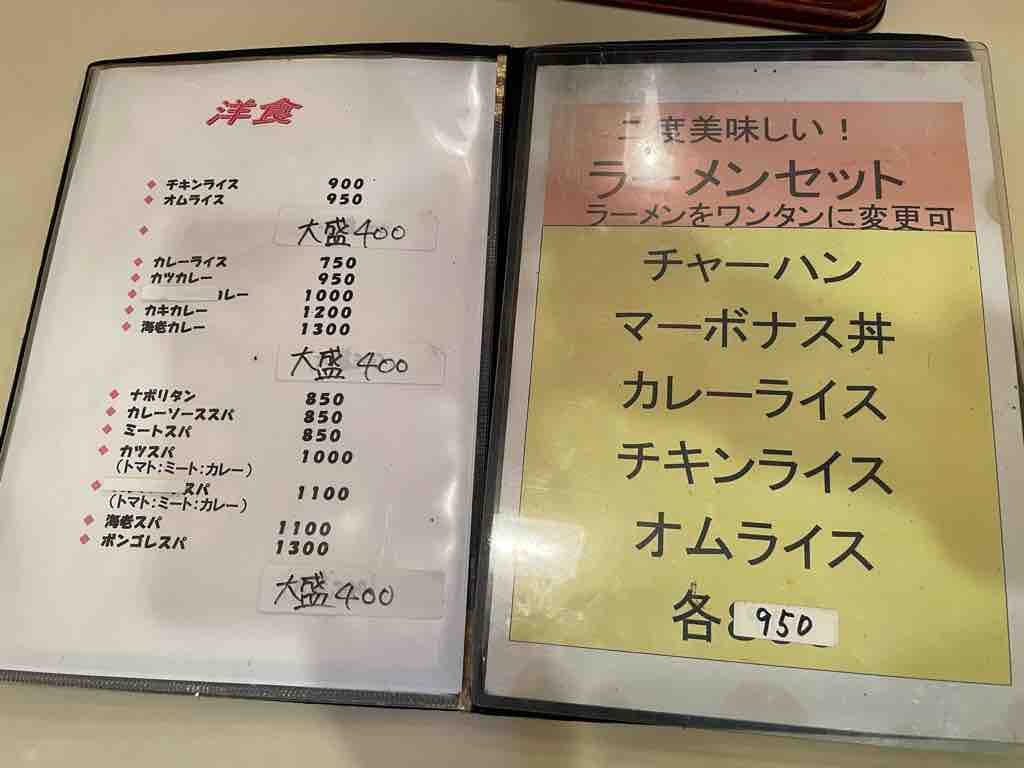 洋食
チキンライス 900
オムライス 950
大盛400
カレーライス 750
カツカレー 950
レー 1000
カキカレー 1200
海老カレー 1300
大盛400
ナポリタン 850
カレーソーススパ 850
ミートスパ 850
カツスパ 1000
(トマト:ミート:カレー)
スパ 1100
(トマト:ミート:カレー)
海老スパ 1100
ボンゴレスパ 1300
大盛400
二度美味しい!
ラーメンセット
ラーメンをワンタンに変更可
チャーハン
マーボナス丼
カレーライス
チキンライス
オムライス
各 950